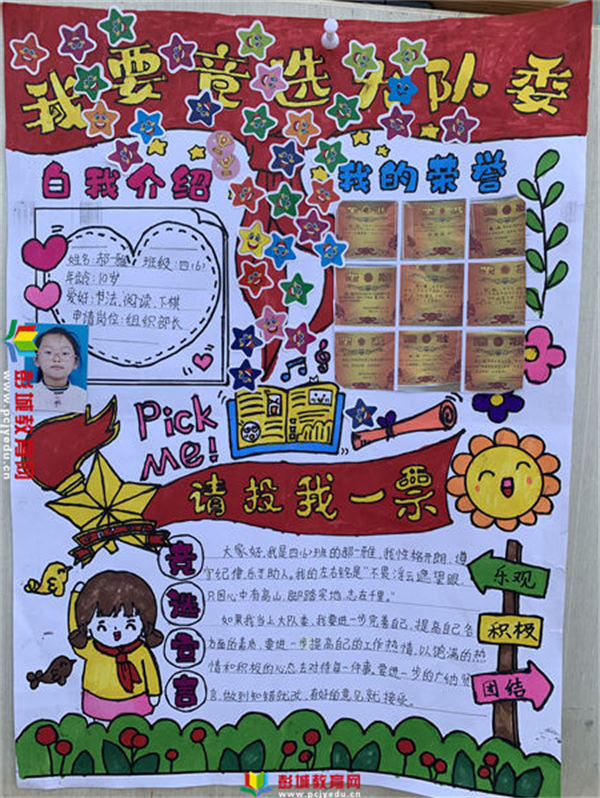 我要竞选大队委
自我介绍
我的荣誉
姓名:郝一雅 班级:四(6)
年龄:10岁
爱好:书法、阅读、下棋
申请岗位:组织部长
彭城教育网
www.pcjyedu.cn
Pick
me!
请投我一票
竞选宣言
大家好,我是四(6)班的郝一雅,我性格开朗,遵
守纪律,乐于助人。我的左右铭是“不畏浮云遮望眼,
只因心中有高山,脚踏实地,志在千里。”
如果我当上大队委,我要进一步完善自己,提高自己各
方面的素质,要进一步提高自己的工作热情,以饱满的热
情和积极的心态去对待每一件事。要进一步的广纳贤
言,做到知错就改,有好的意见就接纳。
乐观
积极
团结
彭城教育网
www.pcjyedu.cn